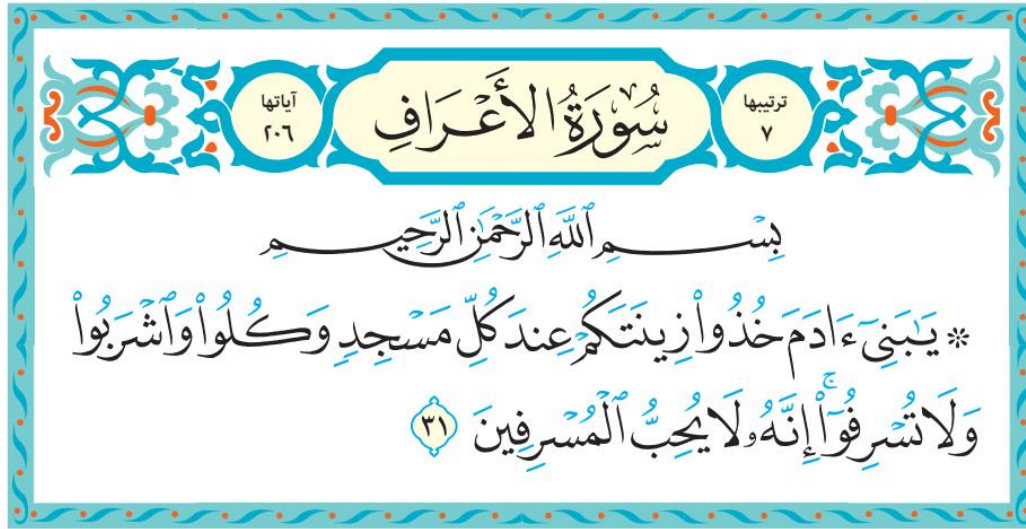 ترتيبها
٧
سُورَةُ الأَعْرَافِ
آياتها
٢٠٦
بِسْمِ ٱللَّهِ ٱلرَّحْمَٰنِ ٱلرَّحِيمِ
۞ يَٰبَنِىٓ ءَادَمَ خُذُوا۟ زِينَتَكُمْ عِندَ كُلِّ مَسْجِدٍ وَكُلُوا۟ وَٱشْرَبُوا۟
وَلَا تُسْرِفُوٓا۟ۚ إِنَّهُۥ لَا يُحِبُّ ٱلْمُسْرِفِينَ ٣١